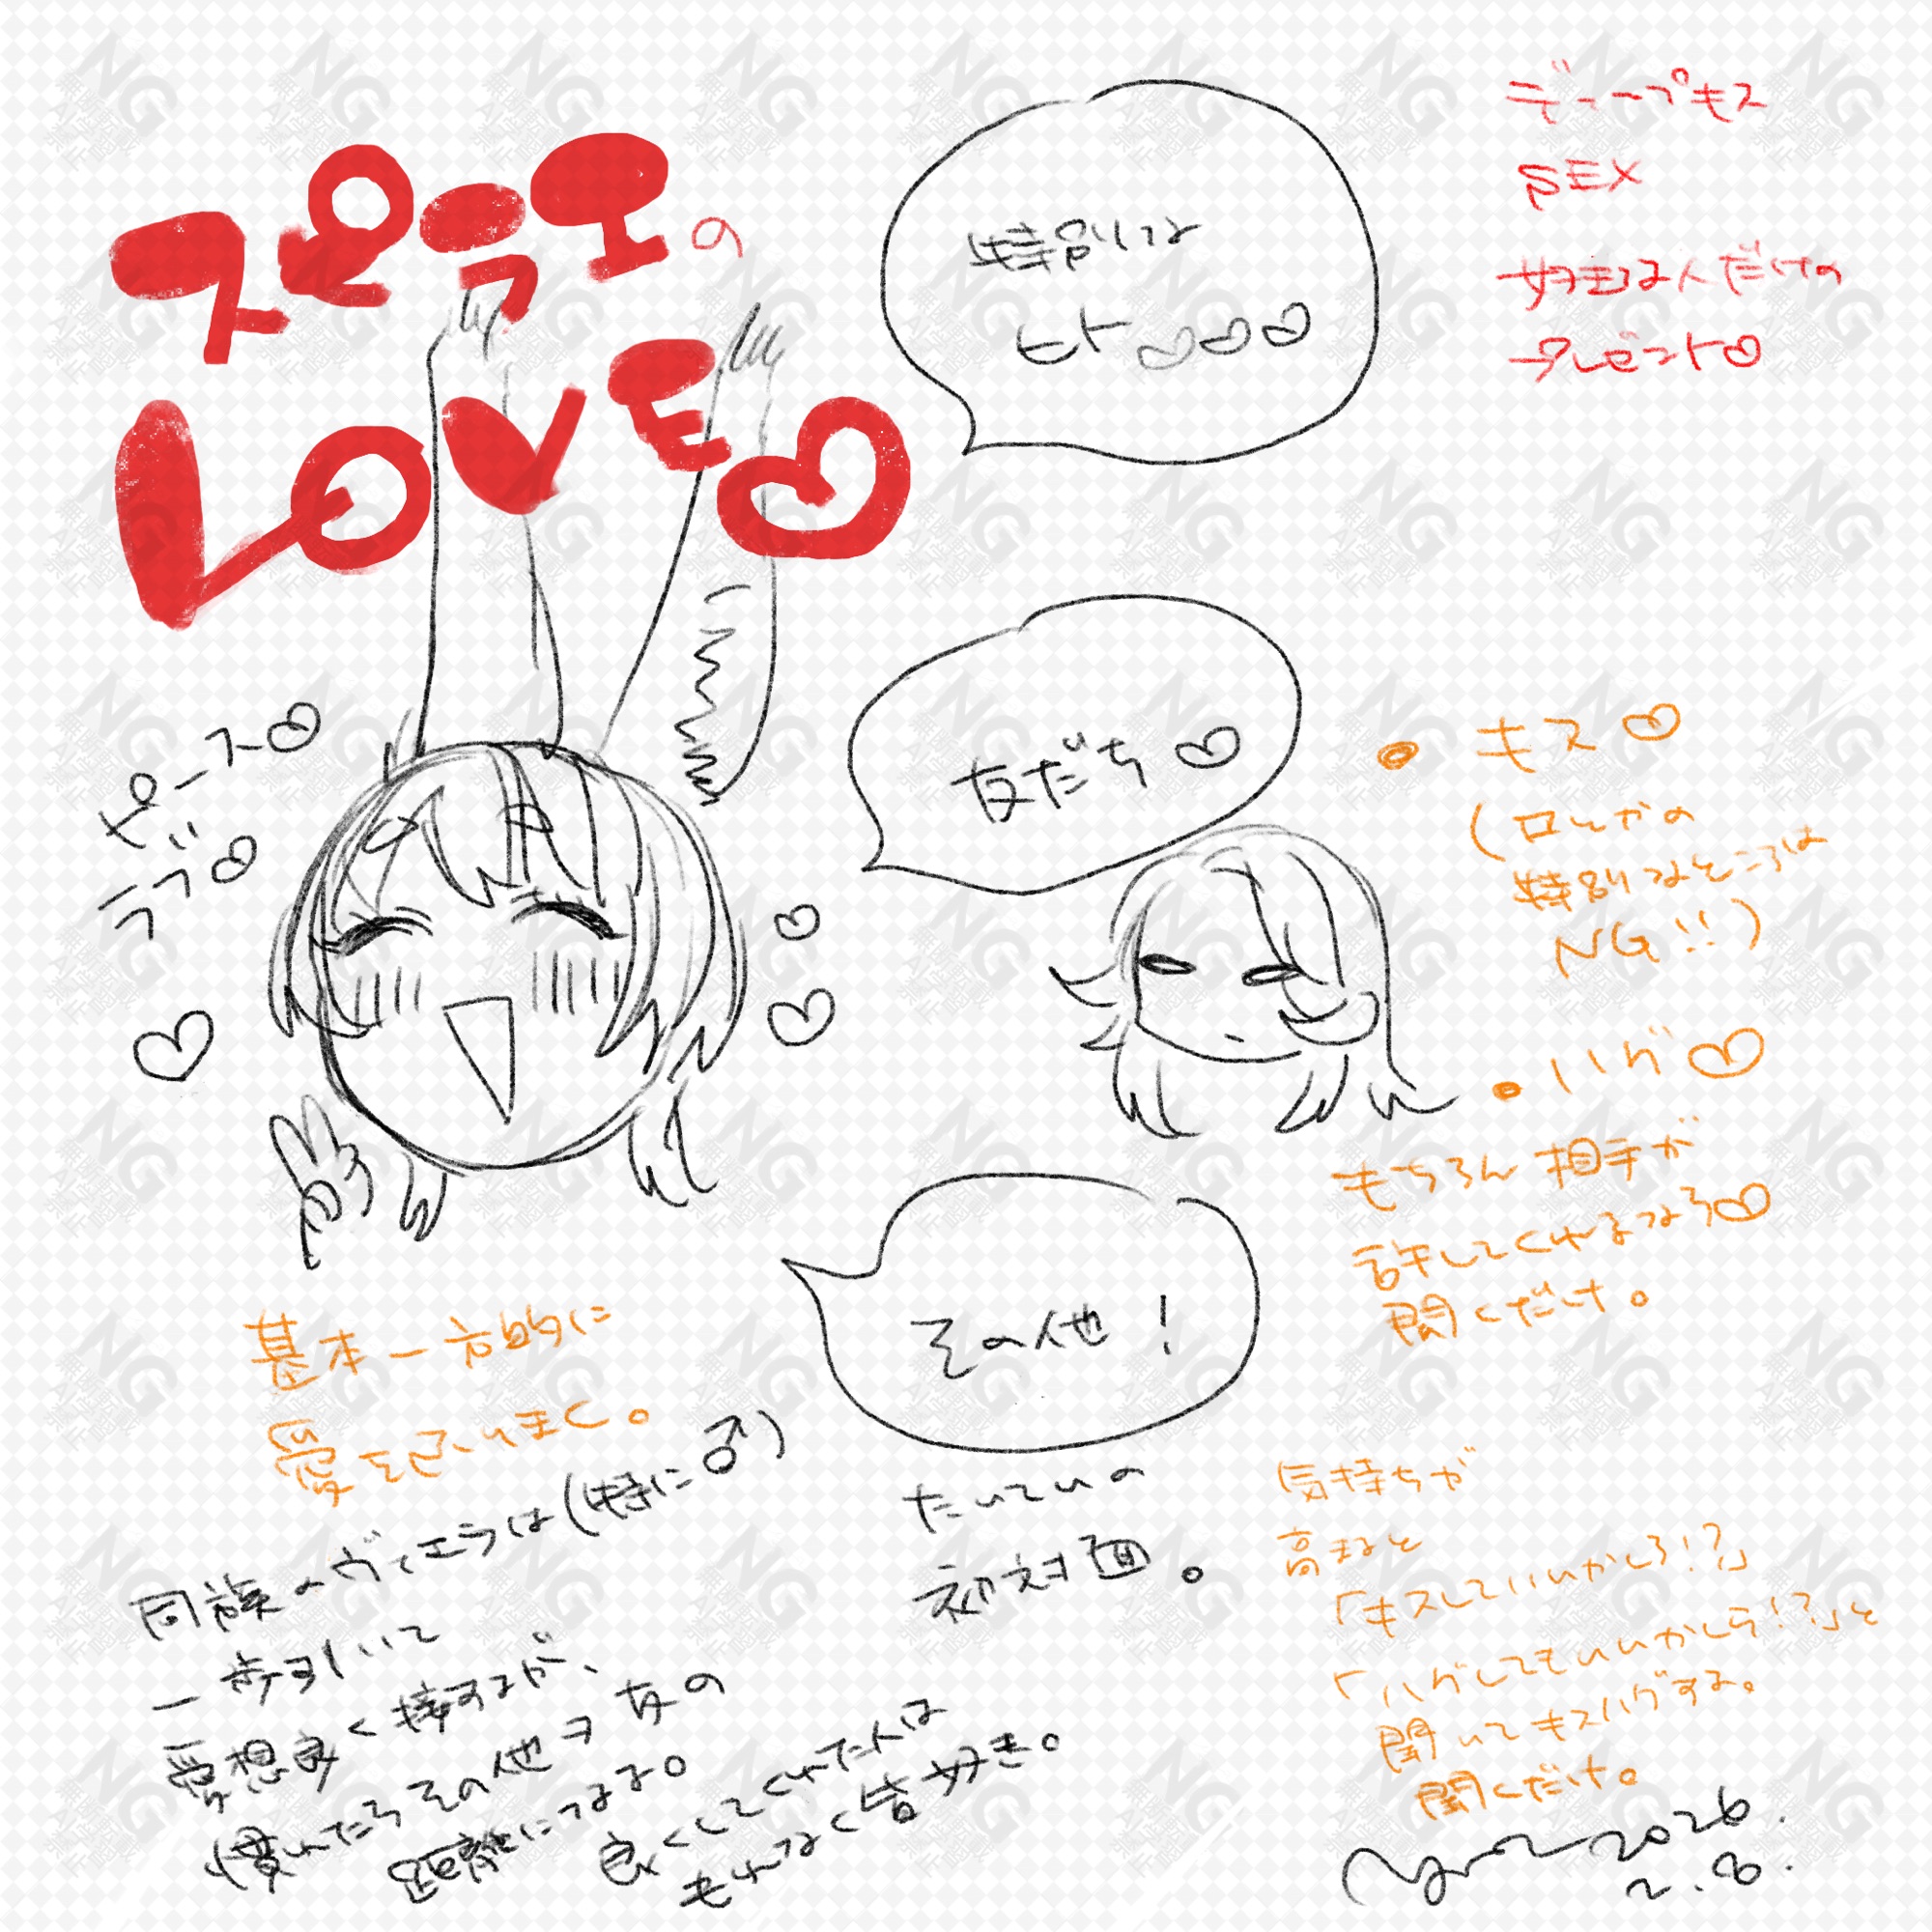 の
LOVE♡
特別な
ヒト♡♡♡
ディープキス
SEX
好きな人だけの
プレゼント♡
ピース♡
ラブ♡
友だち♡
・キス♡
(口とかの
特別なところは
NG!!)
・ハグ♡
もちろん相手が
許してくれるなら♡
聞くだけ。
その他!
基本一方的に
愛を
同族のヴィエラは(特に♂)
一歩引いて
愛想良く接するが、
慣れたらその他ヲ友の
距離になる。
良くしてくれた人は
もれなく皆好き。
たいていの
初対面。
気持ちが
高まると
「キスしていいかしら!?」
「ハグしてもいいかしら!?」と
聞いてキスハグする。
聞くだけ。
2026.
2.8.
NG